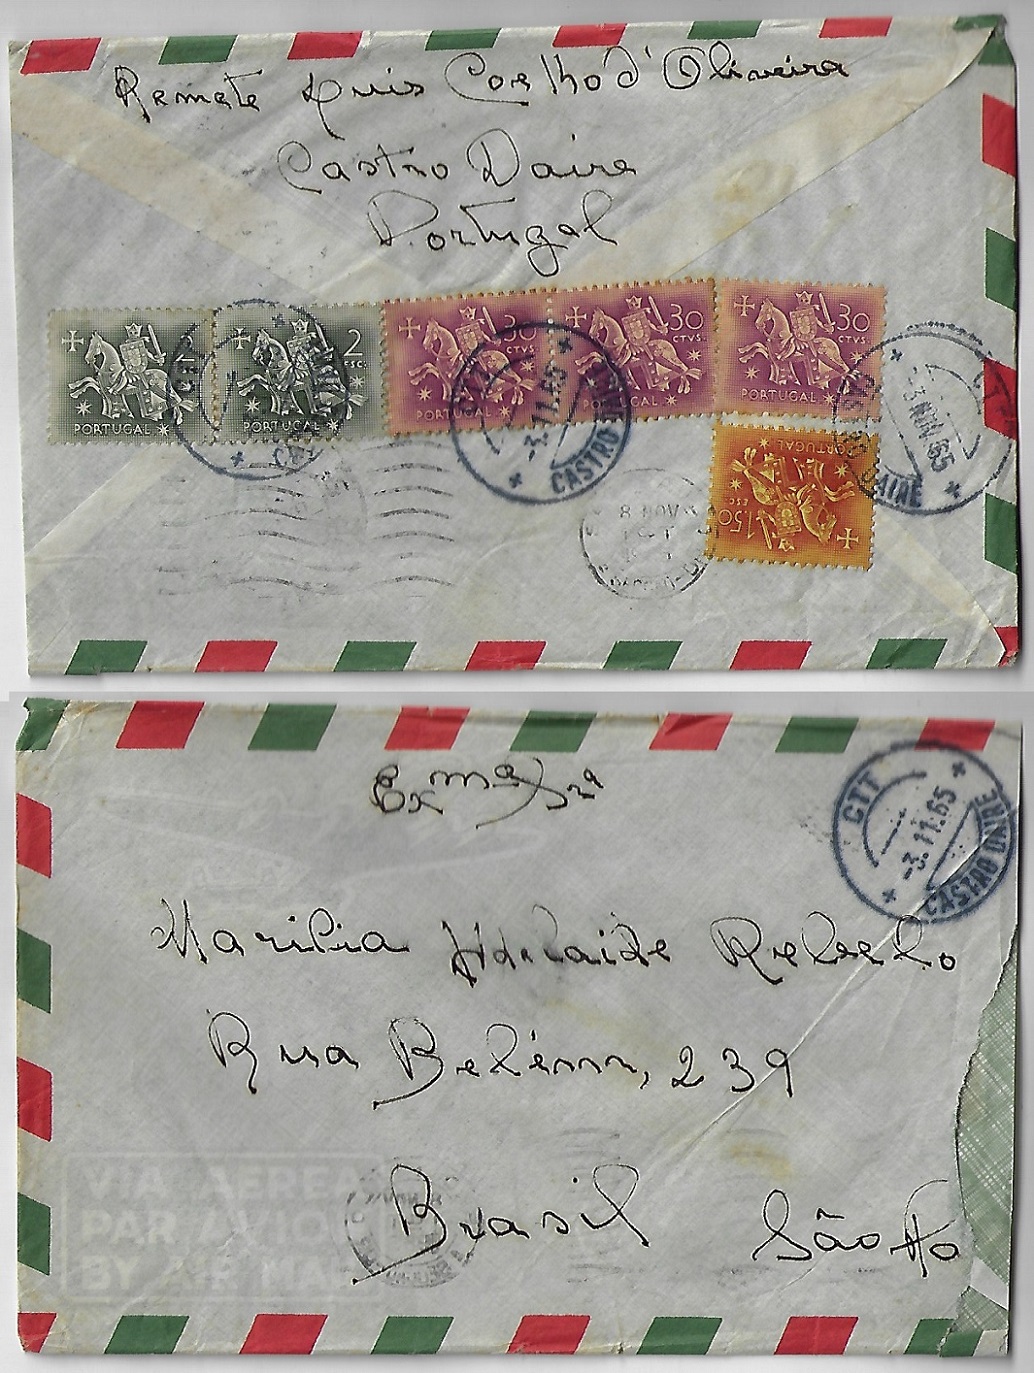 Remete Luis Coelho d'Oliveira
Castro Daire
Portugal
PORTUGAL
2 ESC.
PORTUGAL
30 CTVS.
PORTUGAL
30 CTVS.
PORTUGAL
30 CTVS.
PORTUGAL
1$50 ESC
PORTUGAL
-3.11.65
CASTRO
-3 NOV 65
DAIRE
8 NOV
Exma Sra
CTT
-3.11.65
CASTRO DAIRE
Marilia Adelaide Rebelo
Rua Belém, 239
VIA AEREA
PAR AVION
BY AIR MAIL
Brasil São